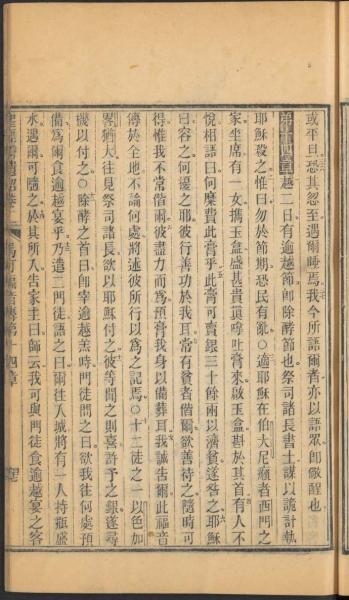 或平旦恐其忽至遇爾睡焉我今所語爾者亦以語眾卽儆醒也
第十四章越二日有逾越節卽除酵節也祭司諸長書士謀以詭計執
耶穌殺之惟曰勿於節期恐民有亂○適耶穌在伯大尼癩者西門之
家坐席有一女攜玉盒盛甚貴真哪吐膏來啟玉盒斟於其首有人不
悅相語曰何糜費此膏乎此膏可賣銀三十餘兩以濟貧遂咎之耶穌
曰容之何擾之耶彼行善功於我耳常有貧者偕爾欲善待之隨時可
得惟我不常偕爾彼盡力而為預膏我身以備葬耳我誠告爾此福音
傳於全地不論何處將述彼所行以為之記焉○十二徒之一以色加
畧猶大往見祭司諸長欲以耶穌付之彼等聞之則喜許予之銀遂尋
機以付之○除酵之首日卽宰逾越羔時門徒問之曰欲我往何處預
備為爾食逾越宴乎乃遣二門徒語之曰爾往入城將有一人持瓶盛
水遇爾可隨之於其所入告家主曰師云我可與門徒食逾越宴之客
馬可 第十四章